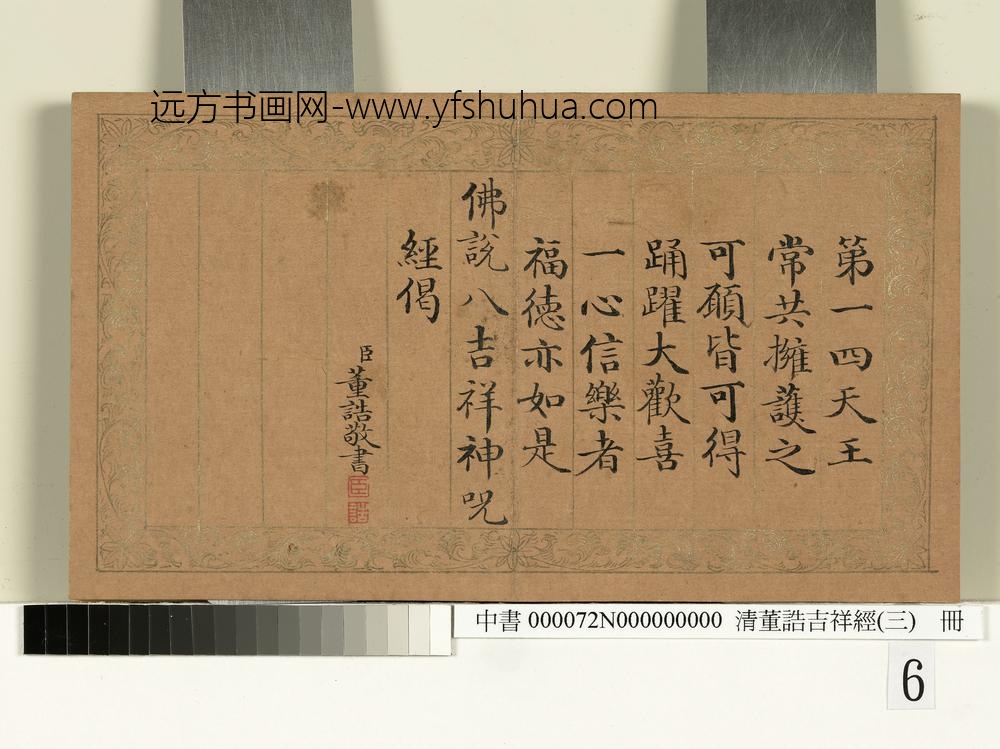 远方书画网-www.yfshuhua.com
第一四天王
常共擁護之
可願皆可得
踊躍大歡喜
一心信樂者
福德亦如是
佛說八吉祥神咒
經偈
臣董誥敬書
臣
誥
中書 000072N000000000 清董誥吉祥經(三) 冊
6